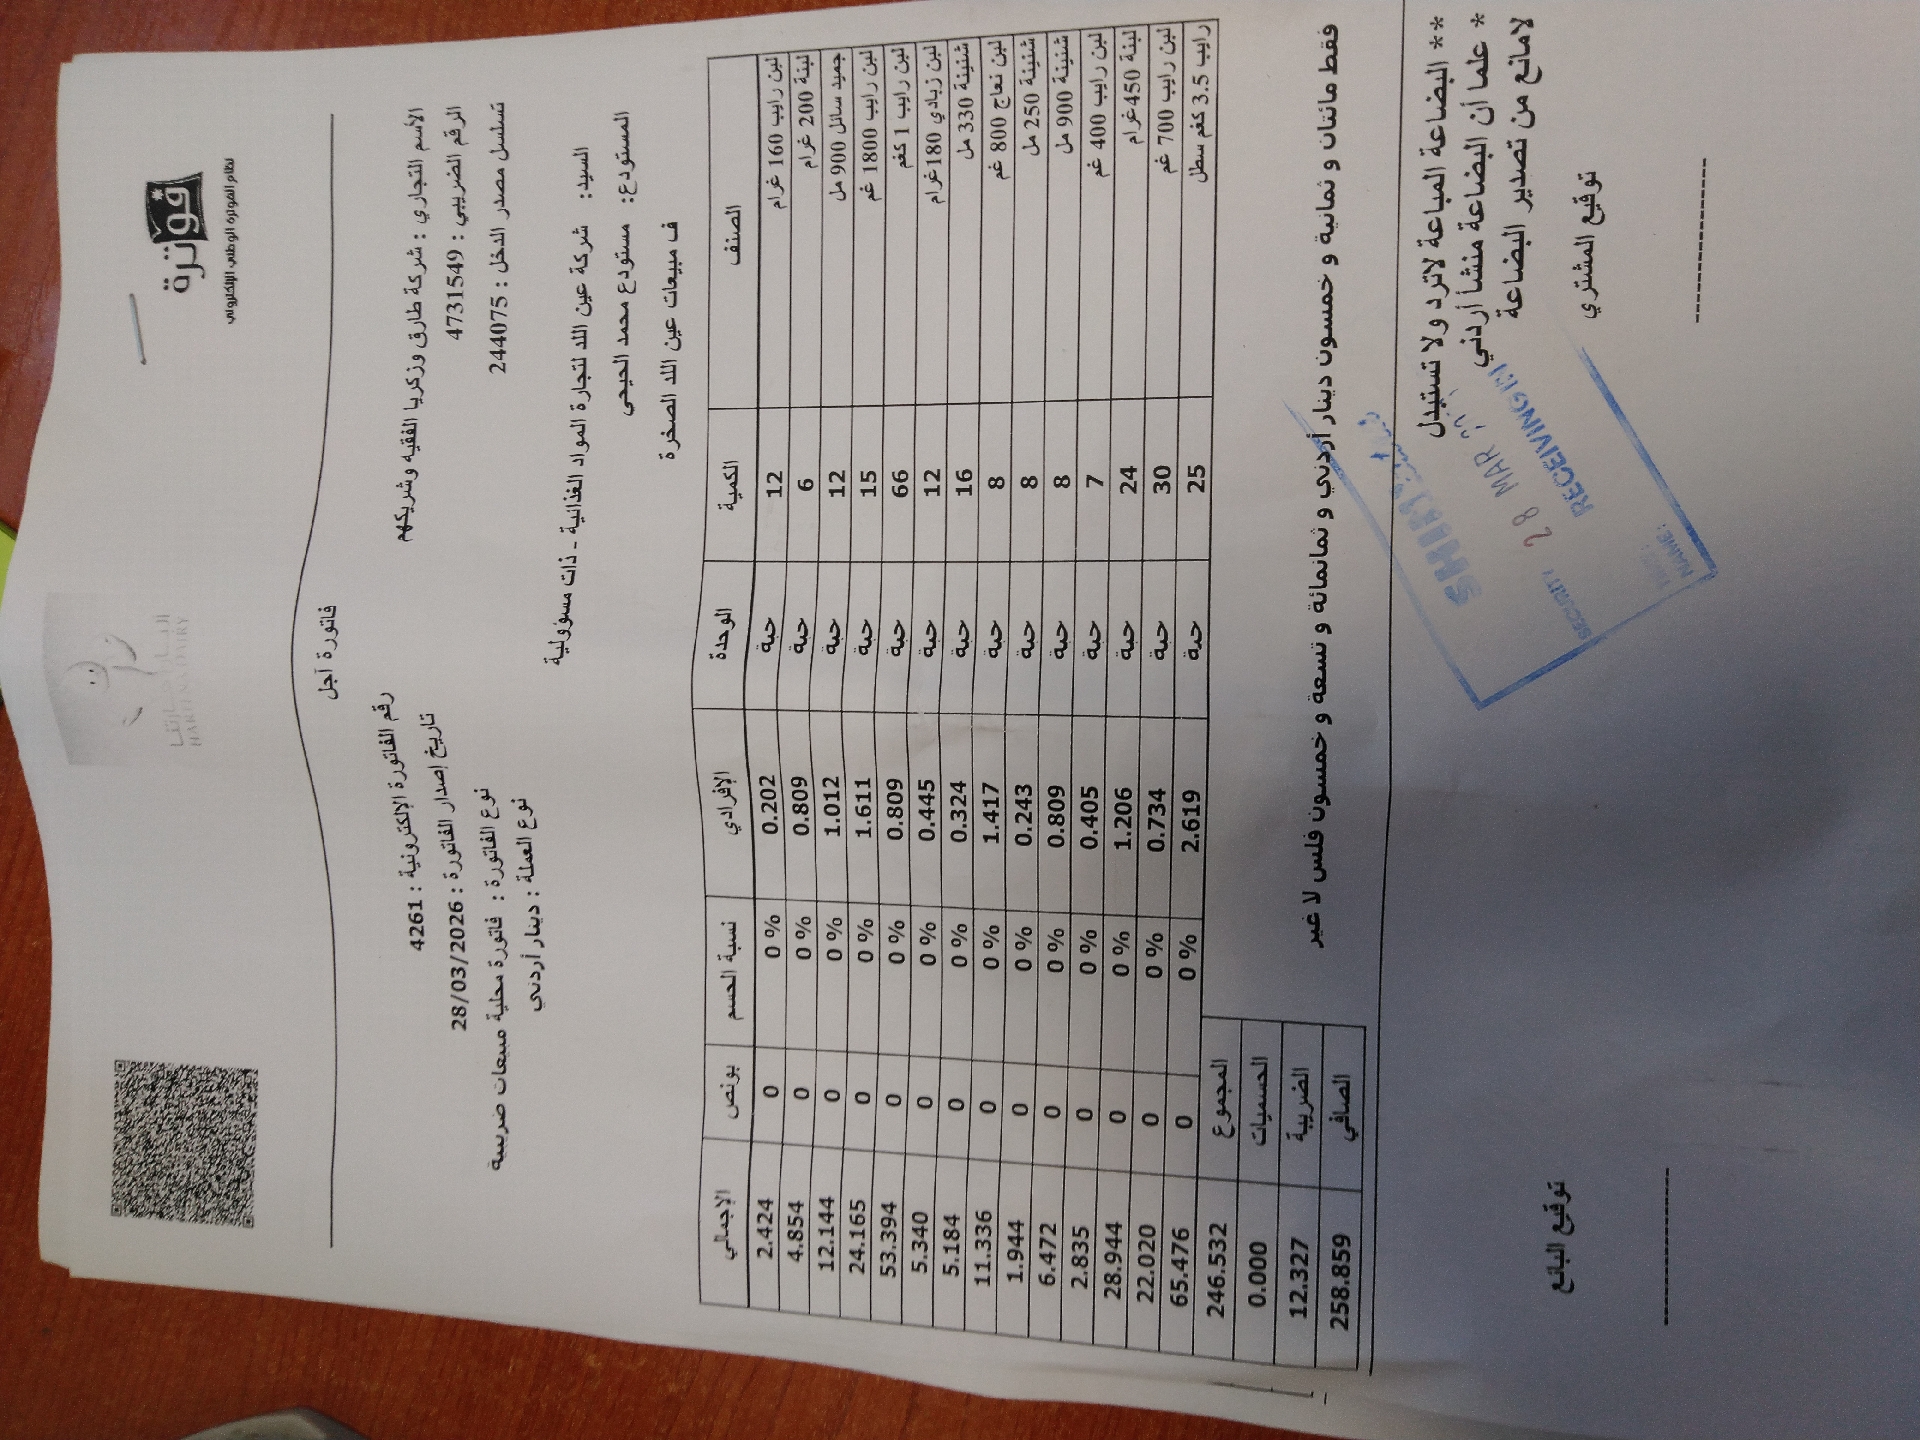 فوترة
نظام الفوترة الوطني الإلكتروني
HARETNA DAIRY
فاتورة آجل
الأسم التجاري : شركة طارق وزكريا الفقيه وشريكهم
رقم الفاتورة الإلكترونية : 4261
الرقم الضريبي : 4731549
تاريخ إصدار الفاتورة : 28/03/2026
تسلسل مصدر الدخل : 244075
نوع الفاتورة : فاتورة محلية مبيعات ضريبية
نوع العملة : دينار أردني
السيد: شركة عين اللد لتجارة المواد الغذائية - ذات مسؤولية
المستودع: مستودع محمد الحيحى
ف مبيعات عين اللد الصخرة
الصنف الكمية الوحدة الإفرادي نسبة الحسم بونص الإجمالي
لبن رايب 160 غرام 12 حبة 0.202 0 % 0 2.424
لبنة 200 غرام 6 حبة 0.809 0 % 0 4.854
جميد سائل 900 مل 12 حبة 1.012 0 % 0 12.144
لبن رايب 1800 غم 15 حبة 1.611 0 % 0 24.165
لبن رايب 1 كغم 66 حبة 0.809 0 % 0 53.394
لبن زبادي 180غرام 12 حبة 0.445 0 % 0 5.340
شنينة 330 مل 16 حبة 0.324 0 % 0 5.184
لبن نعاج 800 غم 8 حبة 1.417 0 % 0 11.336
شنينة 250 مل 8 حبة 0.243 0 % 0 1.944
شنينة 900 مل 8 حبة 0.809 0 % 0 6.472
لبن رايب 400 غم 7 حبة 0.405 0 % 0 2.835
لبنة 450غرام 24 حبة 1.206 0 % 0 28.944
لبن رايب 700 غم 30 حبة 0.734 0 % 0 22.020
رايب 3.5 كغم سطل 25 حبة 2.619 0 % 0 65.476
المجموع 246.532
الحسميات 0.000
الضريبة 12.327
الصافي 258.859
فقط مائتان و ثمانية و خمسون دينار أردني و ثمانمائة و تسعة و خمسون فلس لا غير
** البضاعة المباعة لاترد ولا تستبدل
* علما أن البضاعة منشأ أردني
لامانع من تصدير البضاعة
28 MAR
RECEIVING
SECURITY
NAME:
توقيع المشتري
توقيع البائع